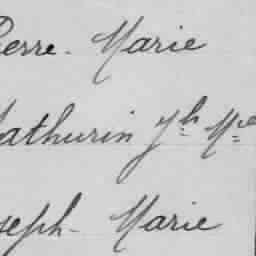 Pierre - Marie
Mathurin Jh Me
Joseph - Marie